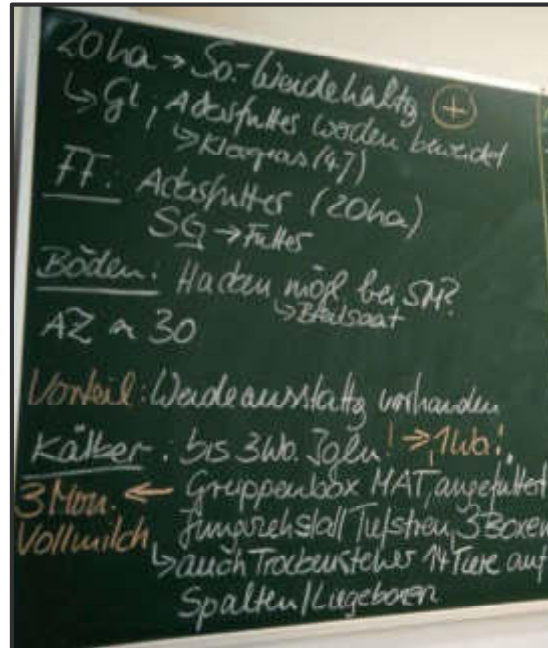 20ha → So.-Weidehaltg (+)
↳ GL, Ackerfutter werden beweidet
↳ Kleegras (4J)
FF: Ackerfutter (20ha)
SG → Futter
Böden: Hacken mögl bei SM?
↳ Breitsaat
AZ ~ 30
Vorteil: Weideausstattg vorhanden
Kälber: bis 3Wo. Iglu! → 1Wo!
3 Mon. ← Gruppenbox MAT, angefüttert
Vollmilch Jungviehstall Tiefstreu, 3 Boxen
↳ auch Trockensteher 14 Tiere auf
Spalten/Liegeboxen